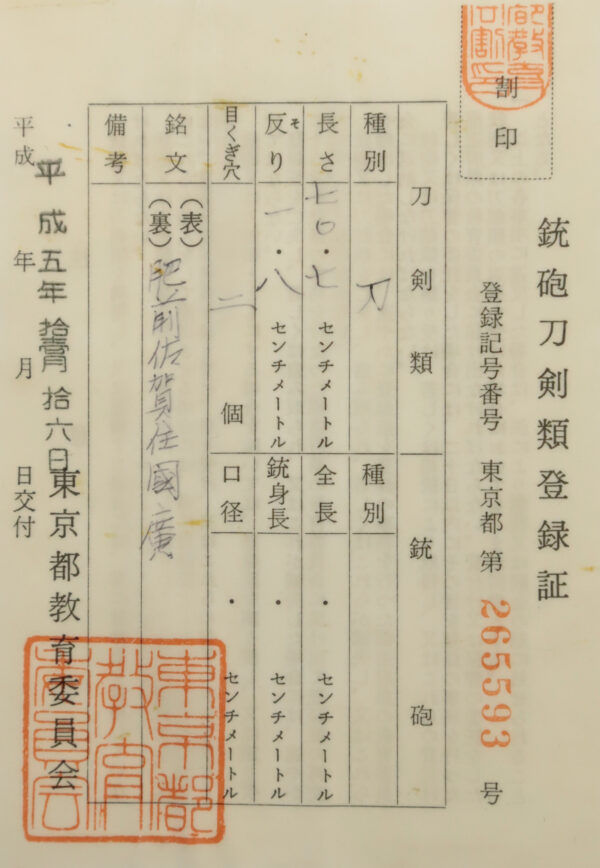 割印
銃砲刀剣類登録証
登録記号番号 東京都 第 265593 号
刀剣類
銃砲
種別 刀
種別
長さ 七〇・七 センチメートル
全長 ・ センチメートル
反り そ 一・八 センチメートル
銃身長 ・ センチメートル
目くぎ穴 二 個
口径 ・ センチメートル
銘文 (表) (裏) 肥前佐賀住國廣
備考
平成五年拾壹月拾六日
東京都教育委員会
平成 年 月 日交付
東京都
教育
委員会